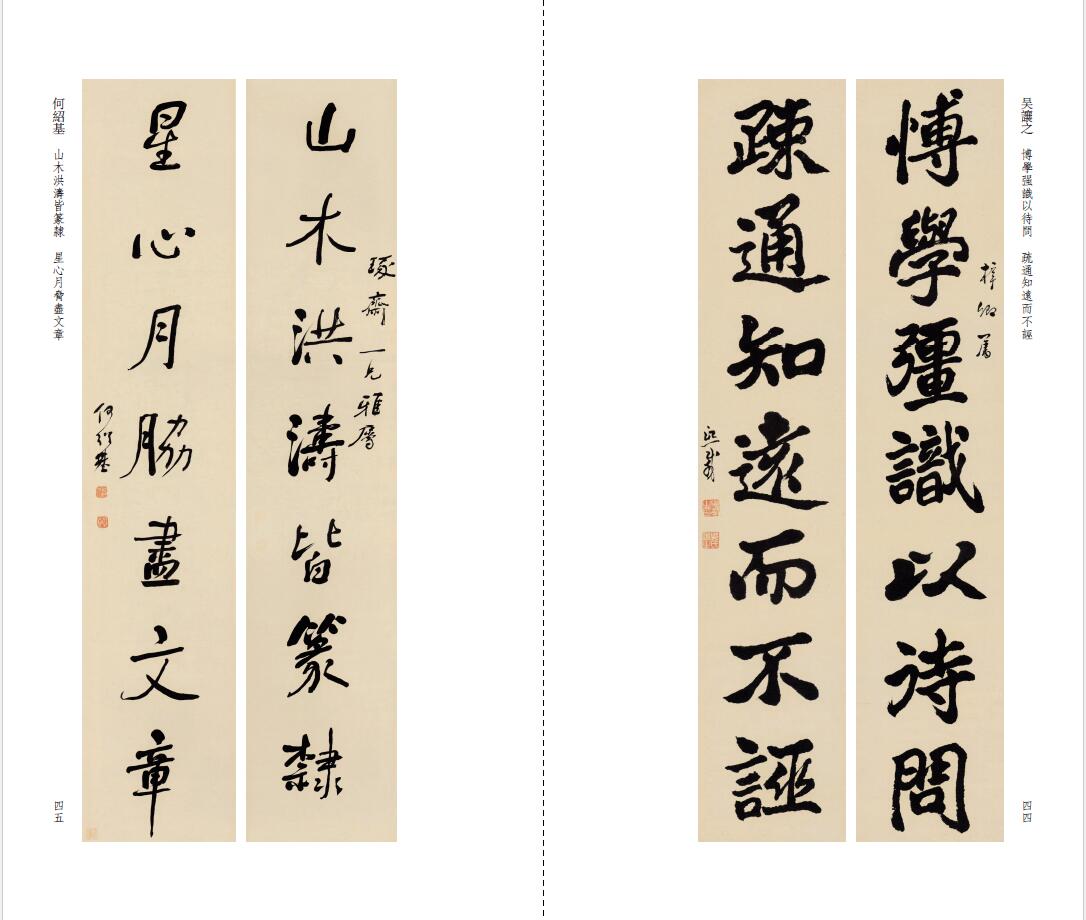 吴讓之 博學强識以待問 疏通知遠而不誣
四四
梓卿屬
博學彊識以待問
疎通知遠而不誣
熙載
琢齋一兄雅屬
山木洪濤皆篆隸
星心月脇盡文章
何紹基
何紹基 山木洪濤皆篆隸 星心月脅盡文章
四五